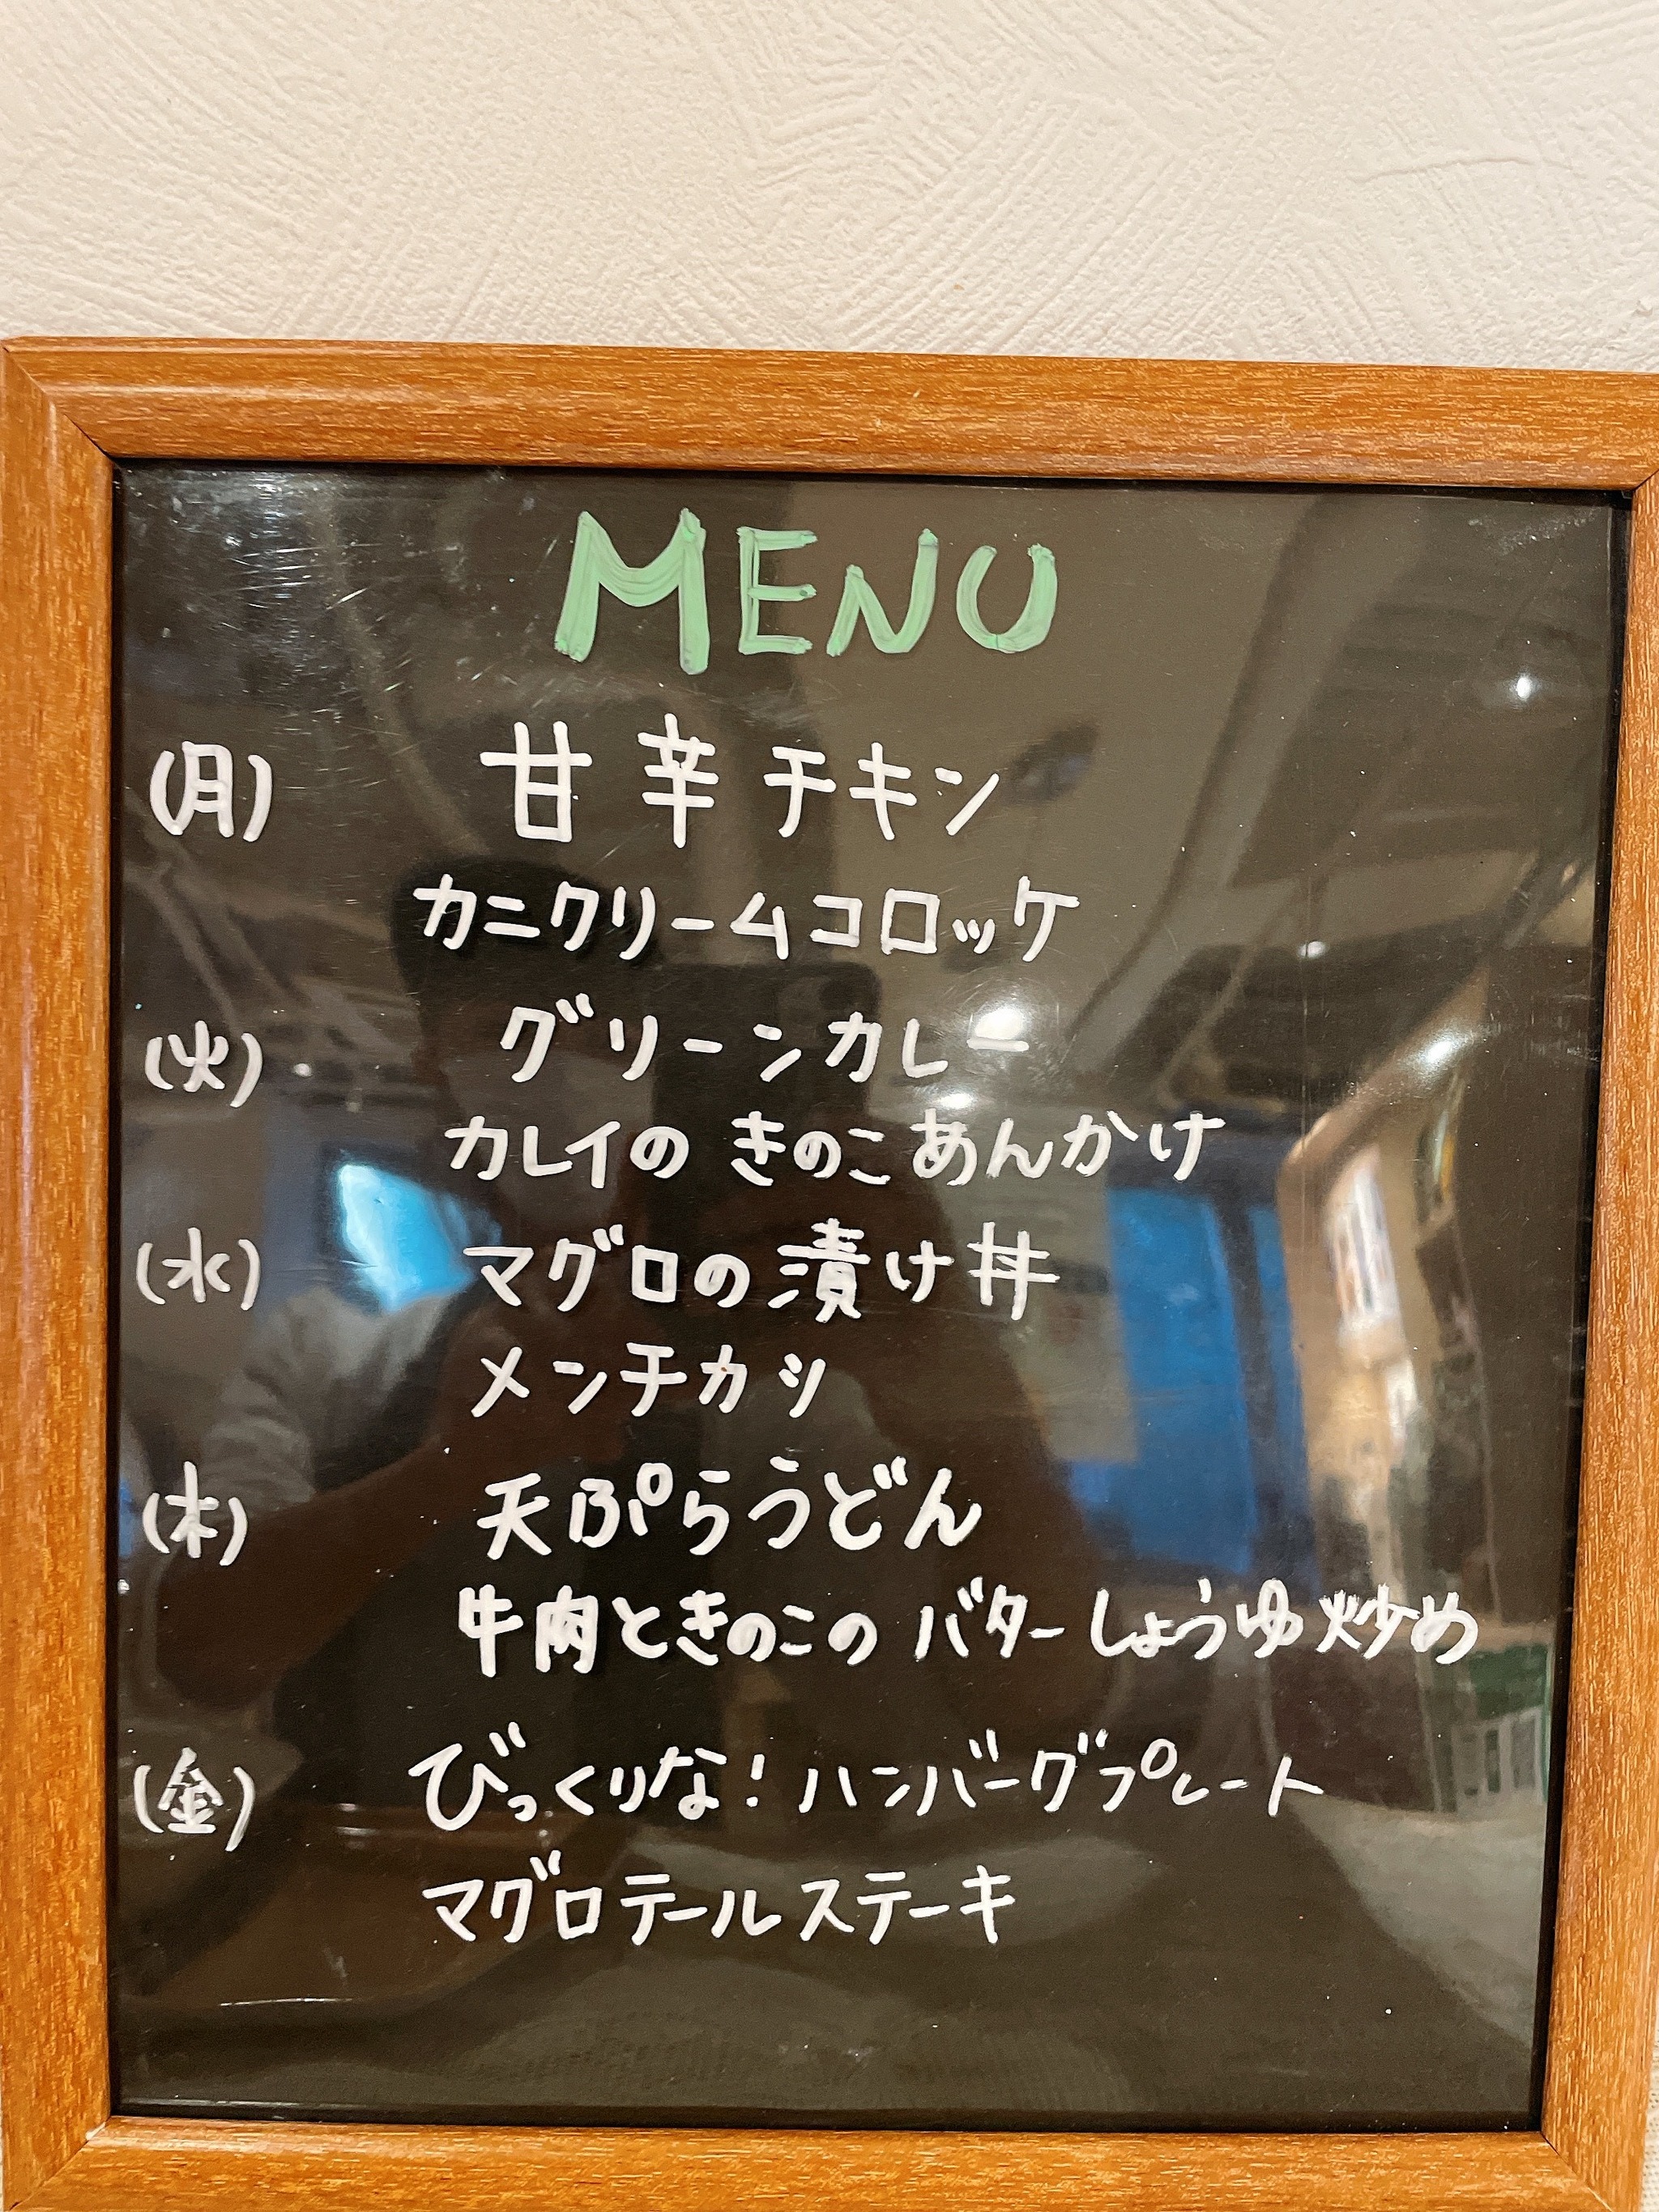 MENU
(月) 甘辛チキン
カニクリームコロッケ
(火) グリーンカレー
カレイの きのこあんかけ
(水) マグロの漬け丼
メンチカツ
(木) 天ぷらうどん
牛肉ときのこの バターしょうゆ炒め
(金) びっくりな!ハンバーグプレート
マグロテールステーキ